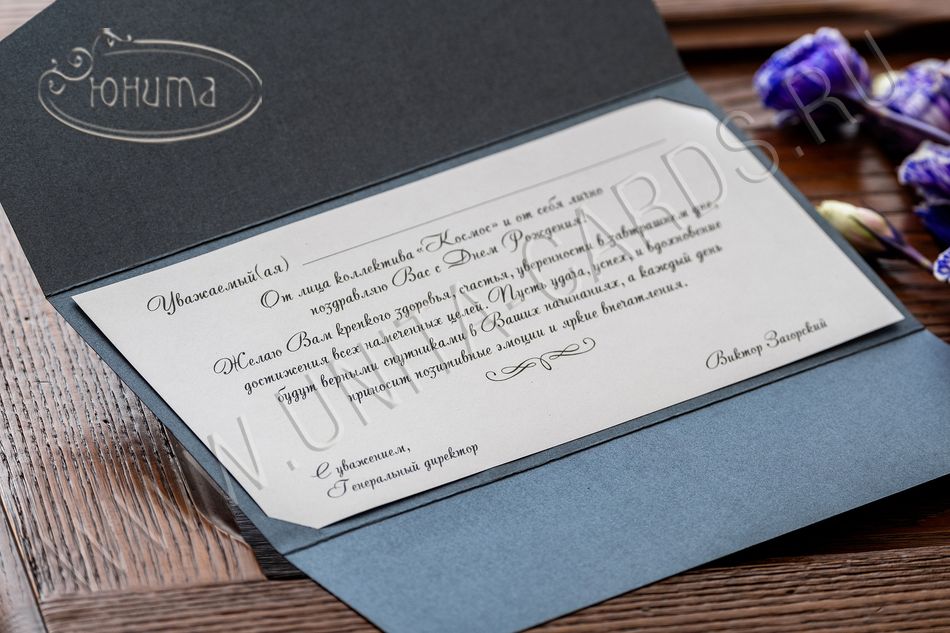 Юнита
Уважаемый(ая)
От лица коллектива «Космос» и от себя лично
поздравляю Вас с Днем Рождения!
Желаю Вам крепкого здоровья, счастья, уверенности в завтрашнем дне,
достижения всех намеченных целей. Пусть удача, успех, и вдохновение
будут верными спутниками в Ваших начинаниях, а каждый день
приносит позитивные эмоции и яркие впечатления.
С уважением,
Генеральный директор
Виктор Загорский
WWW.UNITA-CARDS.RU